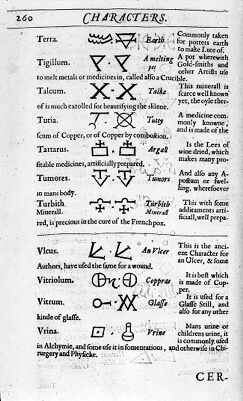 260 CHARACTERS.
Terra. Earth Commonly taken
for potters earth
to make Lute of.
Tigillum. A melting
pot A pot wherewith
Gold-smiths and
other Artists use
to melt metals or medicines in, called also a Crucible.
Talcum. Talke This minerall is
scarce well known
yet, the oyle there-
of is much extolled for beautifying the skinne.
Tutia. Tutty A medicine com-
monly knowne,
and is made of the
scum of Copper, or of Copper by combustion.
Tartarus. Argall Is the Lees of
wine dried, which
makes many pro-
fitable medicines, artificially prepared.
Tumores. Tumors And also any A-
postum or swel-
ling, wheresoever
in mans body.
Turbith
Minerall. Turbith
Minerall This with some
additaments arti-
ficiall, well prepa-
red, is precious in the cure of the French pox.
Vlcus. An Vlcer This is the anci-
ent Character for
an Ulcer, & some
Authors, have used the same for a wound.
Vitriolum. Copperas It is best which
is made of Cop-
per.
Vitrum. Glasse It is used for a
Glasse Still, and
also for any other
kinde of glasse.
Vrina. Vrine Mans urine or
childrens urine, it
is commonly used
in Alchymie, and some use it in fomentations, and otherwise in Chi-
rurgery and Physicke.
CER-